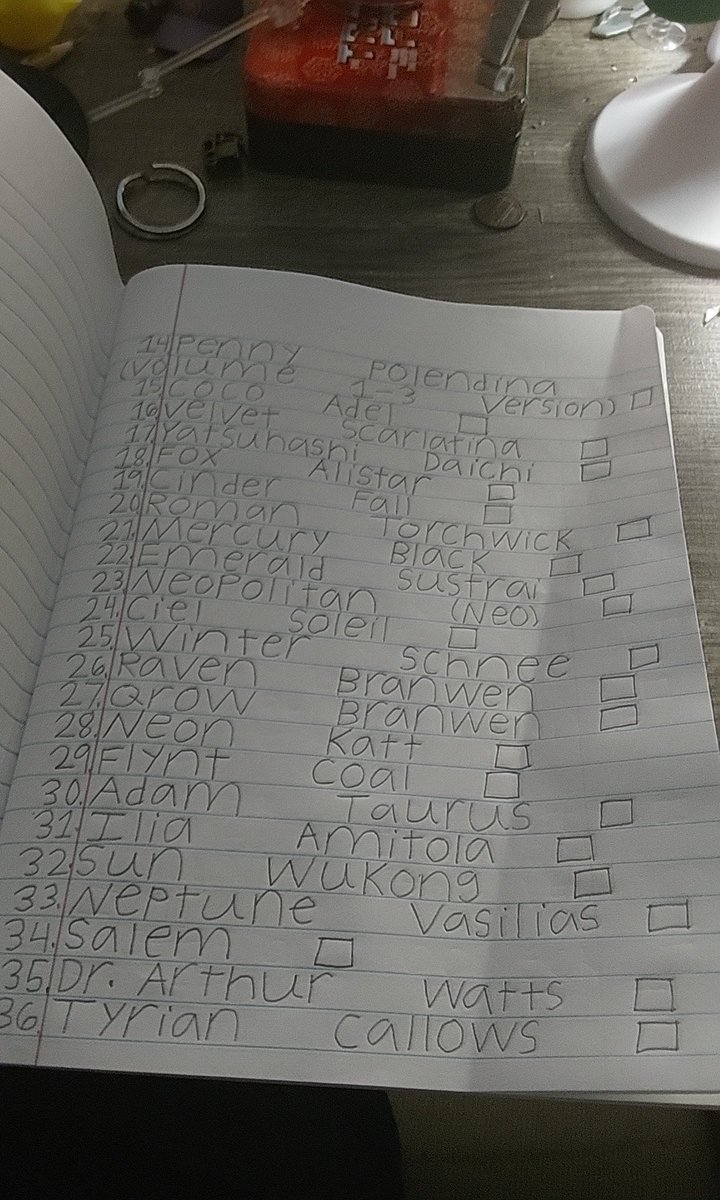 14. Penny Polendina
(Volume 1-3 Version)
15. Coco Adel
16. Velvet Scarlatina
17. Yatsuhashi Daichi
18. Fox Alistar
19. Cinder Fall
20. Roman Torchwick
21. Mercury Black
22. Emerald Sustrai
23. Neopolitan (Neo)
24. Ciel Soleil
25. Winter Schnee
26. Raven Branwen
27. Qrow Branwen
28. Neon Katt
29. Flynt Coal
30. Adam Taurus
31. Ilia Amitola
32. Sun Wukong
33. Neptune Vasilias
34. Salem
35. Dr. Arthur Watts
36. Tyrian Callows